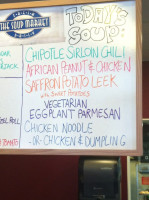 THE SOUP MARKET
TODAY'S
SOUP:
CHIPOTLE SIRLOIN CHILI
AFRICAN PEANUT & CHICKEN
SAFFRON POTATO LEEK
WITH SWEET POTATOES
VEGETARIAN
EGGPLANT PARMESAN
CHICKEN NOODLE
-OR- CHICKEN & DUMPLING